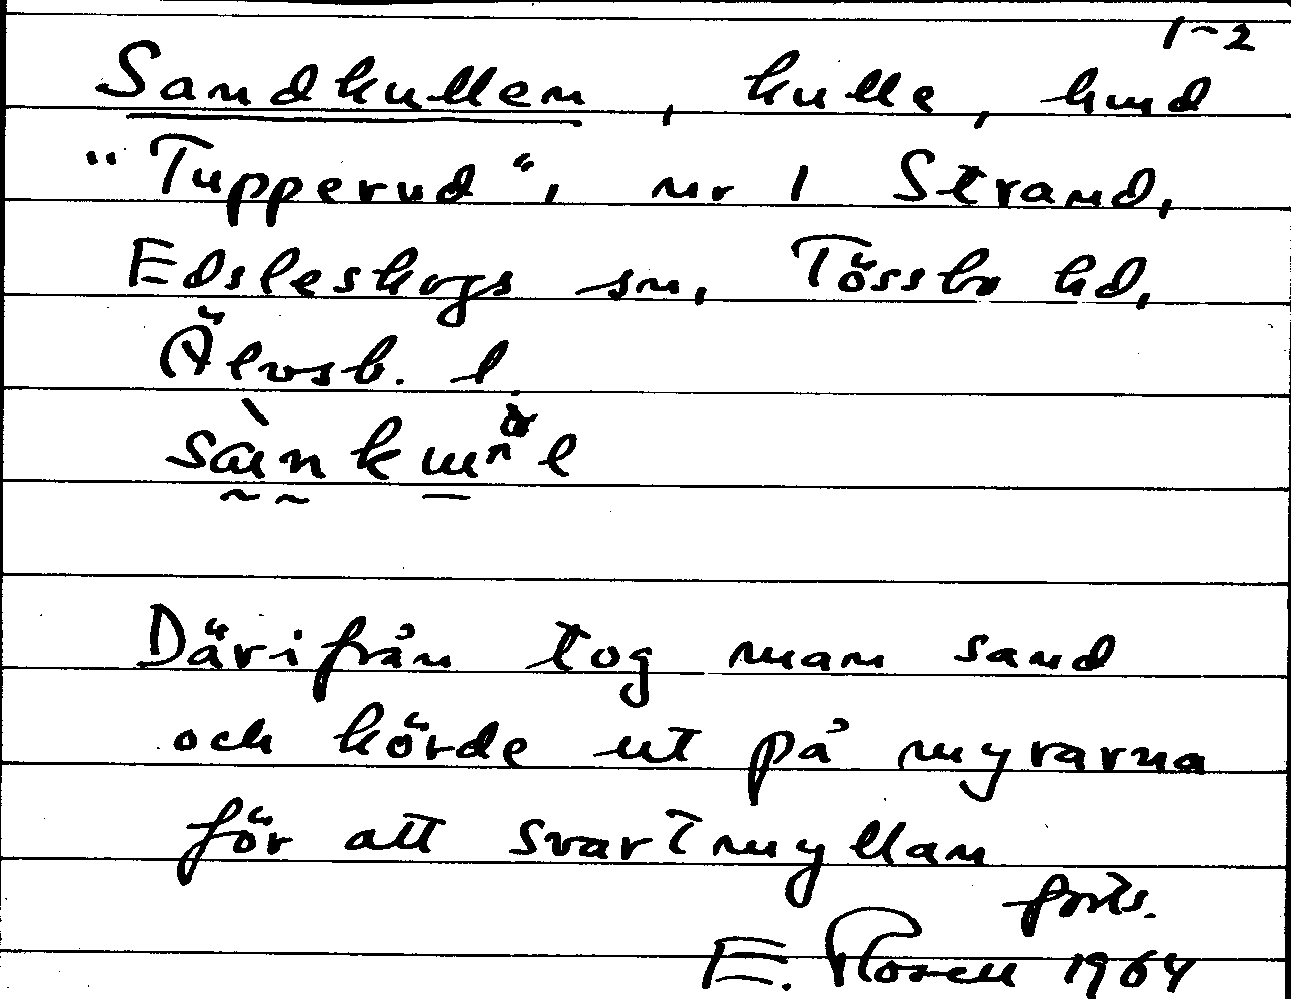 1-2
Sandkullen, kulle, hmd
"Tupperud", nr 1 Strand,
Edsleskogs sn, Tössbo hd,
Älvsb. l.
Därifrån tog man sand
och körde ut på myrarna
för att svartmyllan
forts.
E. Rosell 1964